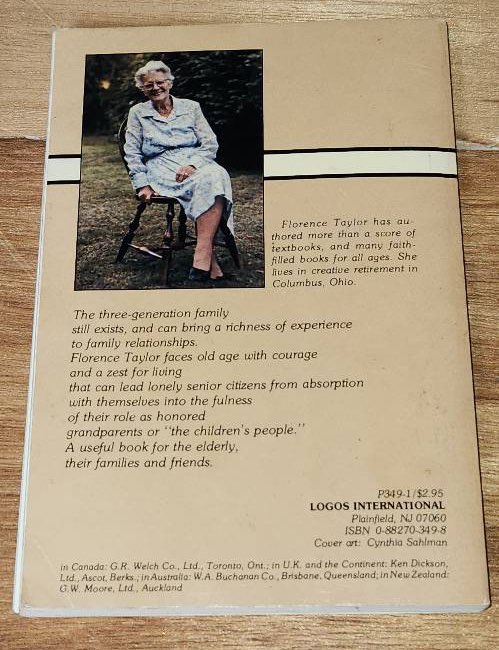 Florence Taylor has au-
thored more than a score of
textbooks, and many faith-
filled books for all ages. She
lives in creative retirement in
Columbus, Ohio.
The three-generation family
still exists, and can bring a richness of experience
to family relationships.
Florence Taylor faces old age with courage
and a zest for living
that can lead lonely senior citizens from absorption
with themselves into the fulness
of their role as honored
grandparents or "the children's people."
A useful book for the elderly,
their families and friends.
P349-1/$2.95
LOGOS INTERNATIONAL
Plainfield, NJ 07060
ISBN 0-88270-349-8
Cover art: Cynthia Sahlman
in Canada: G.R. Welch Co., Ltd., Toronto, Ont.; in U.K. and the Continent: Ken Dickson,
Ltd., Ascot, Berks.; in Australia: W.A. Buchanan Co., Brisbane, Queensland; in New Zealand:
G.W. Moore, Ltd., Auckland